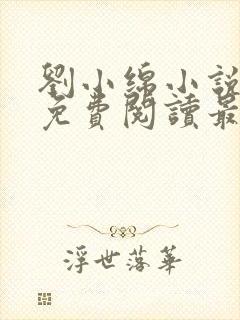 劉小綿小說
免費閱讀最
浮世落華